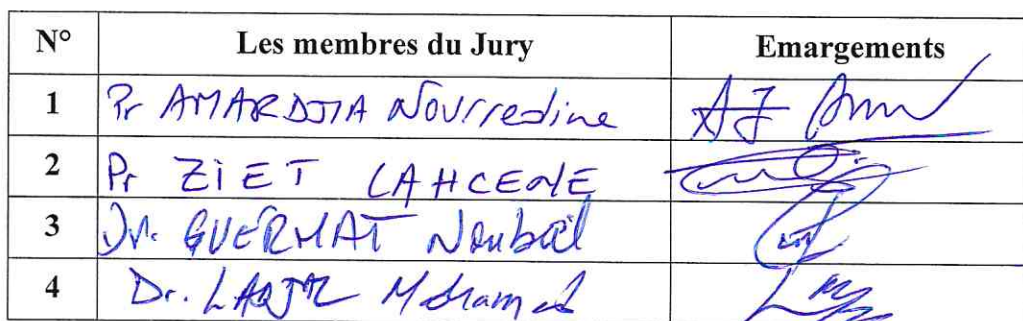 N° Les membres du Jury Emargements
1 Pr AMARDJIA Nourredine
2 Pr ZiET LAHCENE
3 Dr. GUERMAT Noubeil
4 Dr. Mohamed